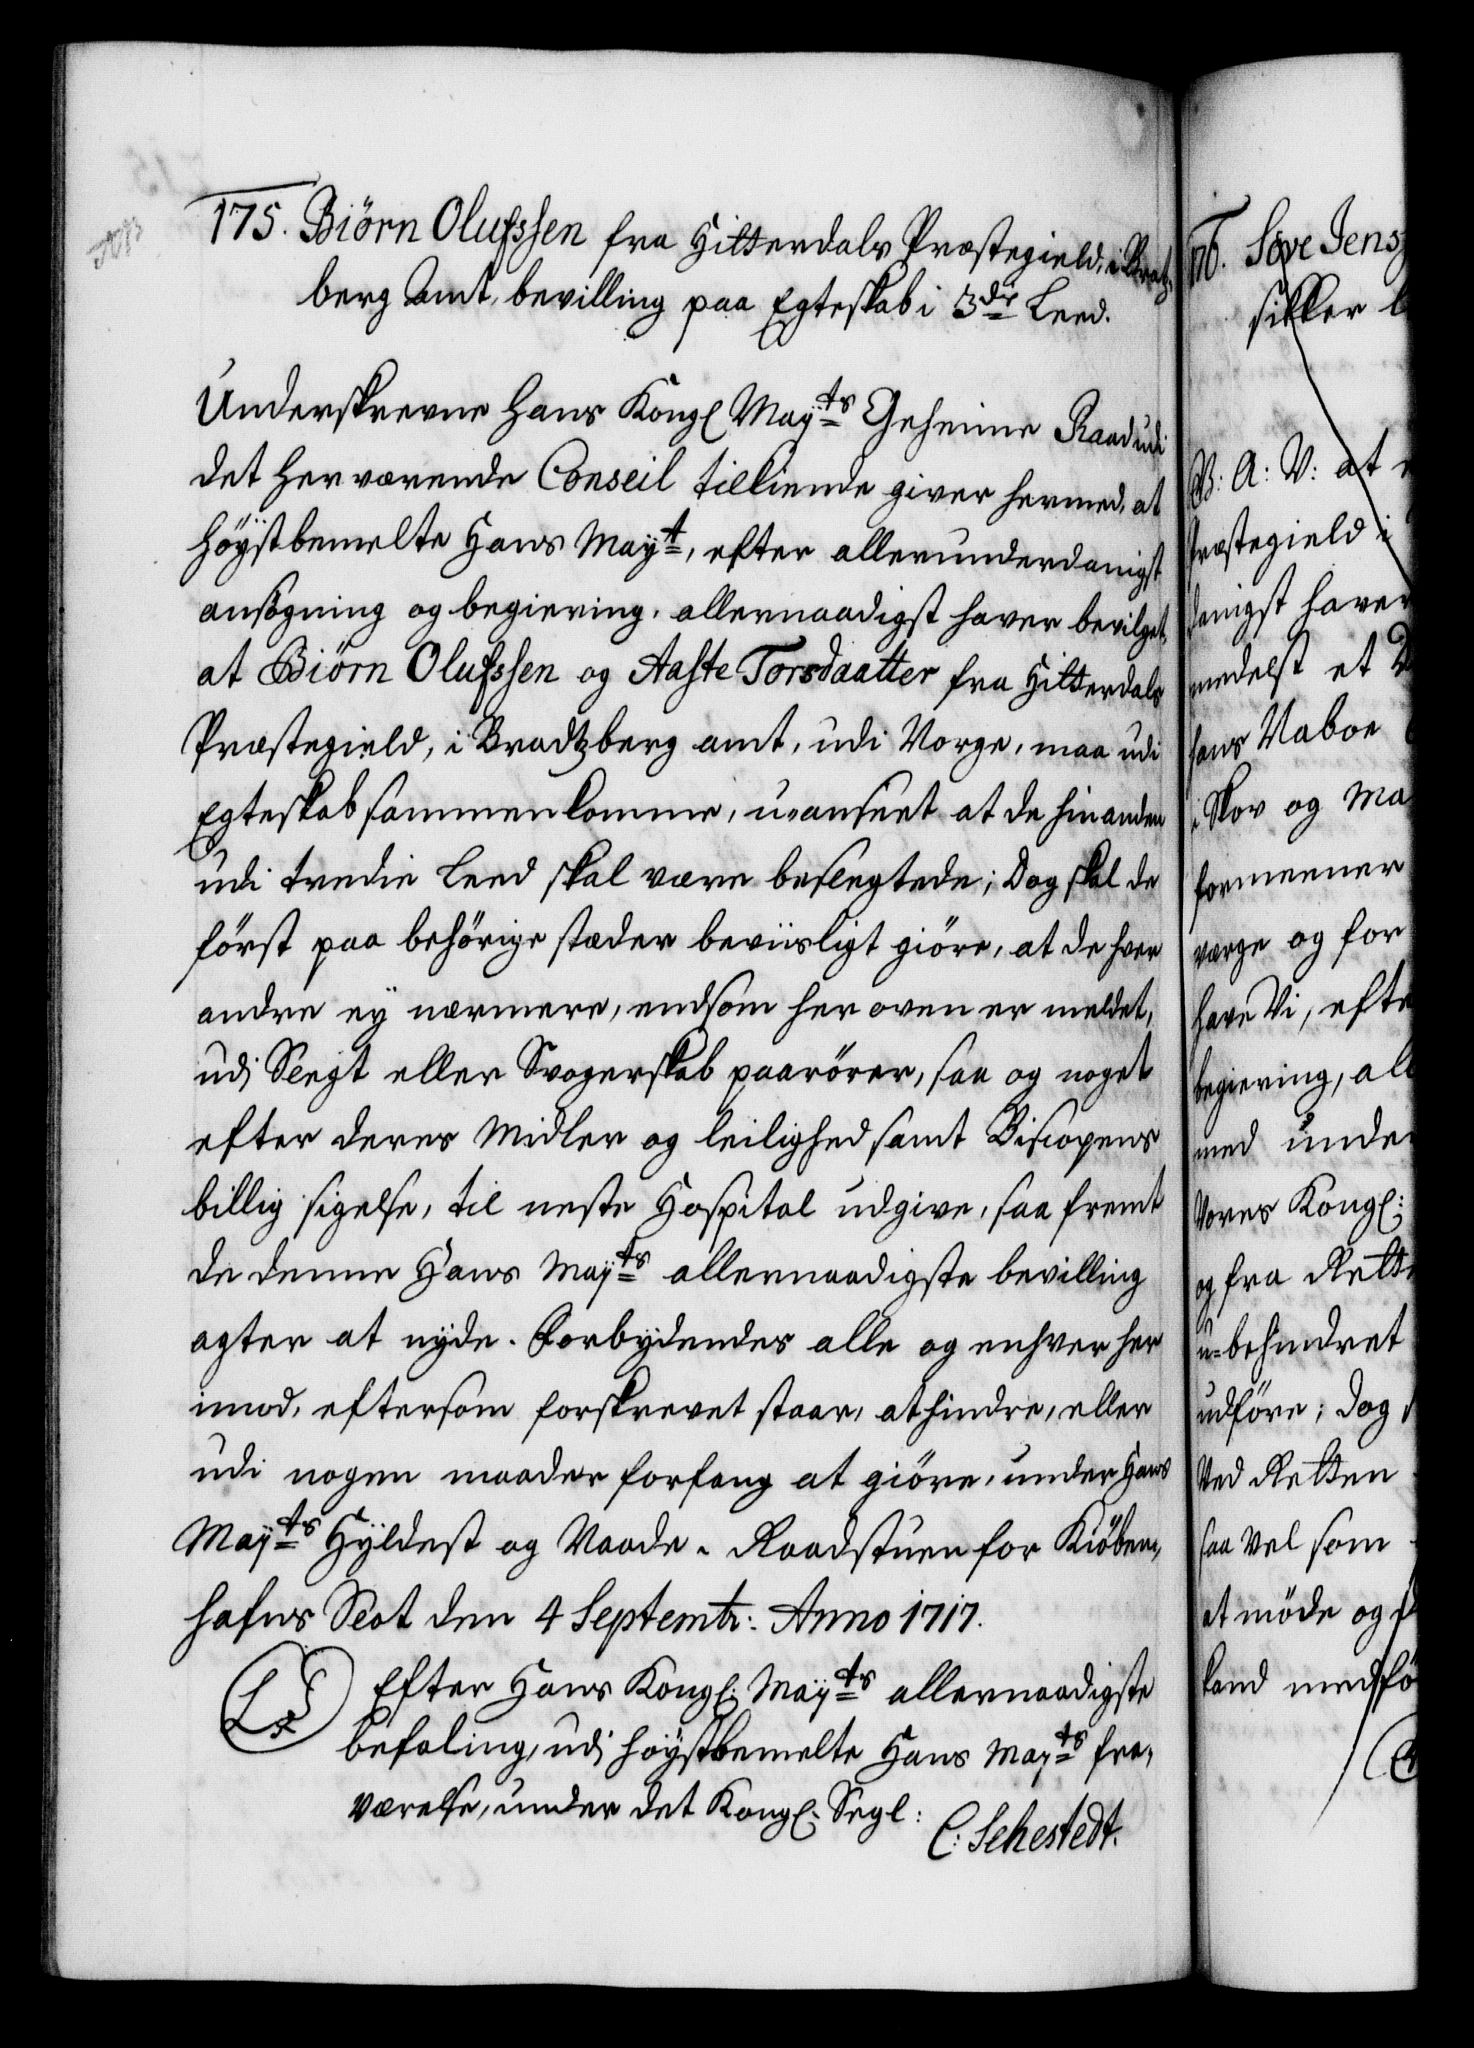 175. Biörn Olufssen fra Hitterdals Præstegield, i Bratz-
berg Amt, bevilling paa Egteskab i 3die Leed.
Underskrevne Hans Kongl Mayts Geheime Raad udi
det herværende Conseil tilkiende giver hermed, at
höystbemelte Hans Mayt, efter allerunderdanigst
ansögning og begiering, allernaadigst haver bevilget,
at Biörn Olufssen og Aaste Torsdaatter fra Hitterdals
Præstegield, i Bradtzberg amt, udi Norge, maa udi
Egteskab sammenkomme, u-anseet at de hinanden
udi tredie Leed skal være beslegtede; Dog skal de
först paa behörige stæder beviisligt giöre, at de hver
andre ey nærmere, end som her oven er meldet,
udi Slegt eller Svogerskab paarörer, saa og noget
efter deres Midler og leilighed samt Biscopens
billig sigelse, til neste Hospital udgive, saa fremt
de denne Hans Mayts allernaadigste bevilling
agter at nyde. Forbydendes alle og enhver her
imod, eftersom forskrevet staar, at hindre, eller
udi nogen maader forfang at giöre, under Hans
Mayts Hyldest og Naade. Raadstuen for Kiöben-
hafns Slot den 4 Septembr: Anno 1717.
LS
Efter Hans Kongl. Mayts allernaadigste
befaling, udi höystbemelte Hans Mayts fra-
værelse, under det Kongl. Segl:
C: Sehestedt.
176. Söve Jens
sikker
B: A: V: at
Præstegield i
danigst haver
medelst et
hans Naboe
i Skov og Ma
formeener
værge og for
have Vi, efte
begiering, all
med unde
Vores Kongl:
og fra Rette
u-behindret
udföre; Dog
Ved Retten
saa vel som
at möde og
kand medfö